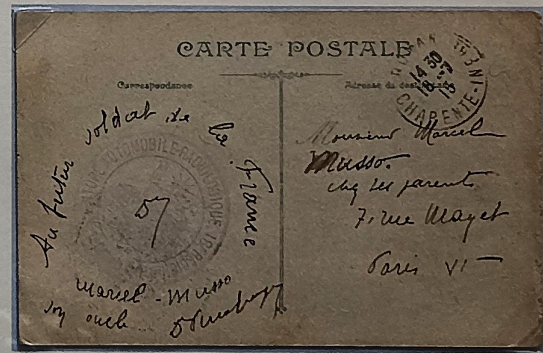 CARTE POSTALE
Correspondance
Adresse du destinataire
14 30
18 -7
15
CHARENTE-INF
Au futur soldat de la France
Marcel - Musso
son oncle
Monsieur Marcel
Musso
chez ses parents
7, rue Mayet
Paris VI